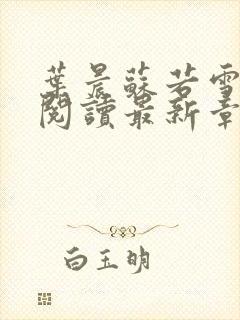 葉晨蘇若雪
閱讀最新章
白玉明